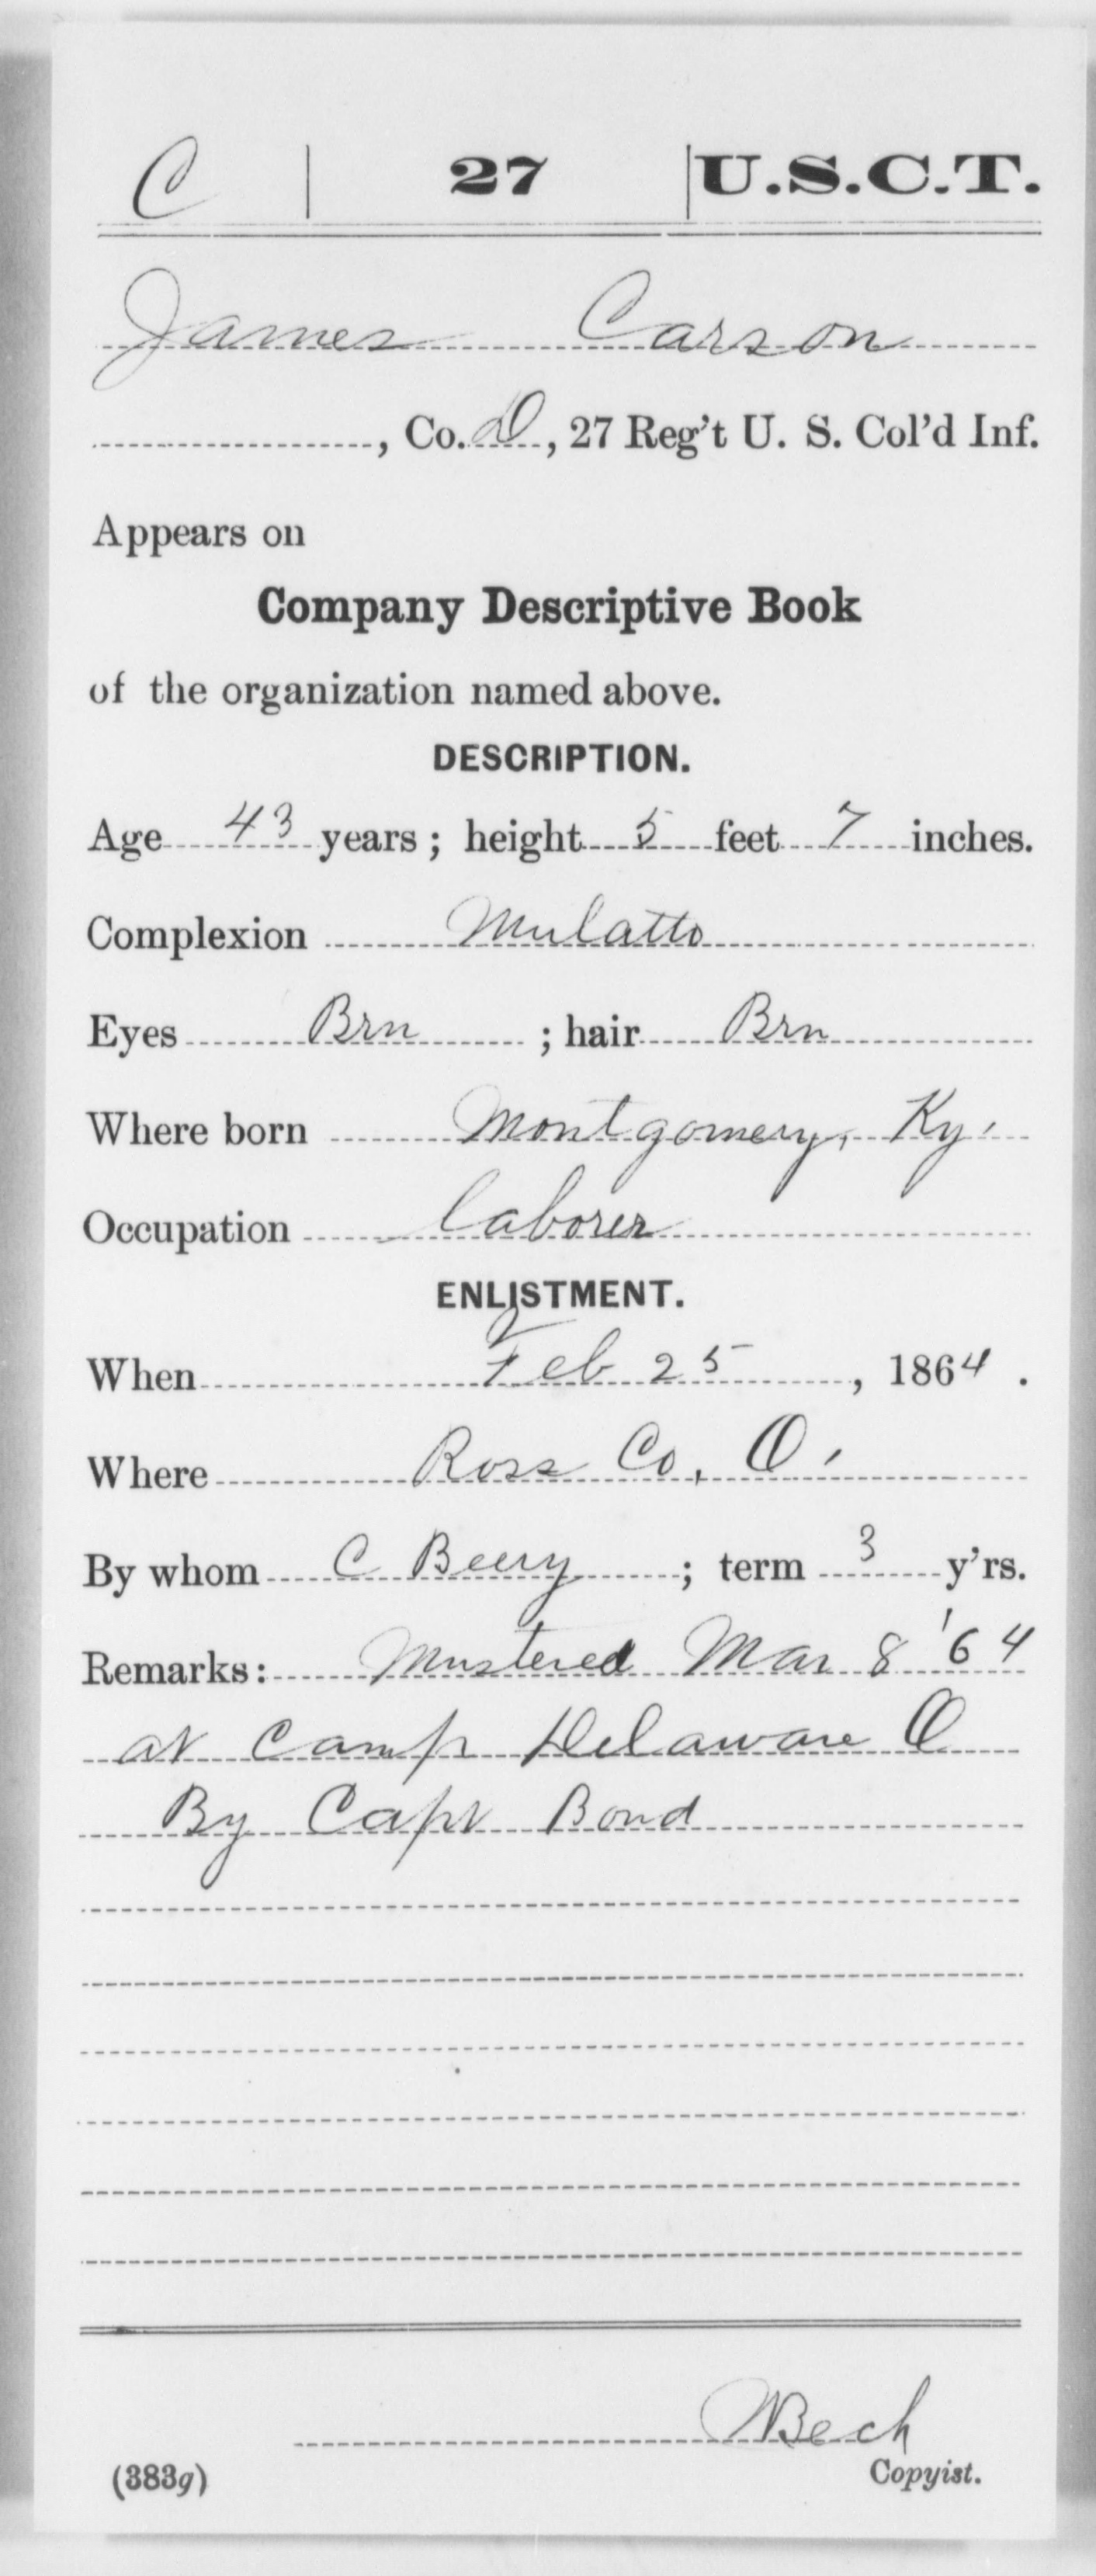 C | 27 | U.S.C.T.
James Carson
, Co. D, 27 Reg't U. S. Col'd Inf.
Appears on
Company Descriptive Book
of the organization named above.
DESCRIPTION.
Age 43 years; height 5 feet 7 inches.
Complexion Mulatto
Eyes Brn ; hair Brn
Where born Montgomery, Ky.
Occupation laborer
ENLISTMENT.
When Feb 25, 1864.
Where Ross Co, O.
By whom C Beery ; term 3 y'rs.
Remarks: Mustered Mar 8 '64
at Camp Delaware O
By Capt Bond
Copyist.
(383g)